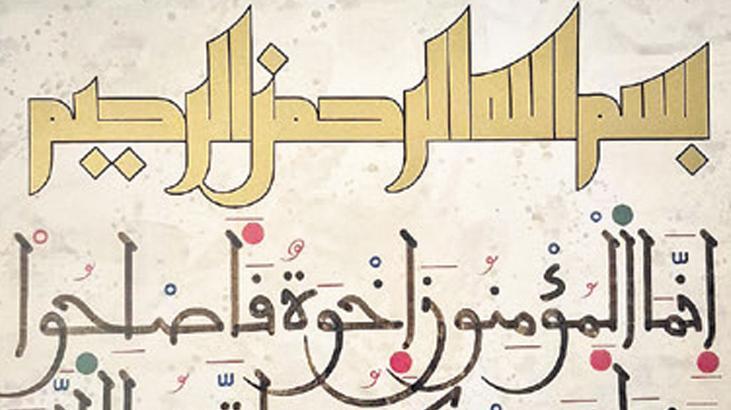 بسم الله الرحمن الرحيم
إنما المؤمنون إخوة فأصلحوا